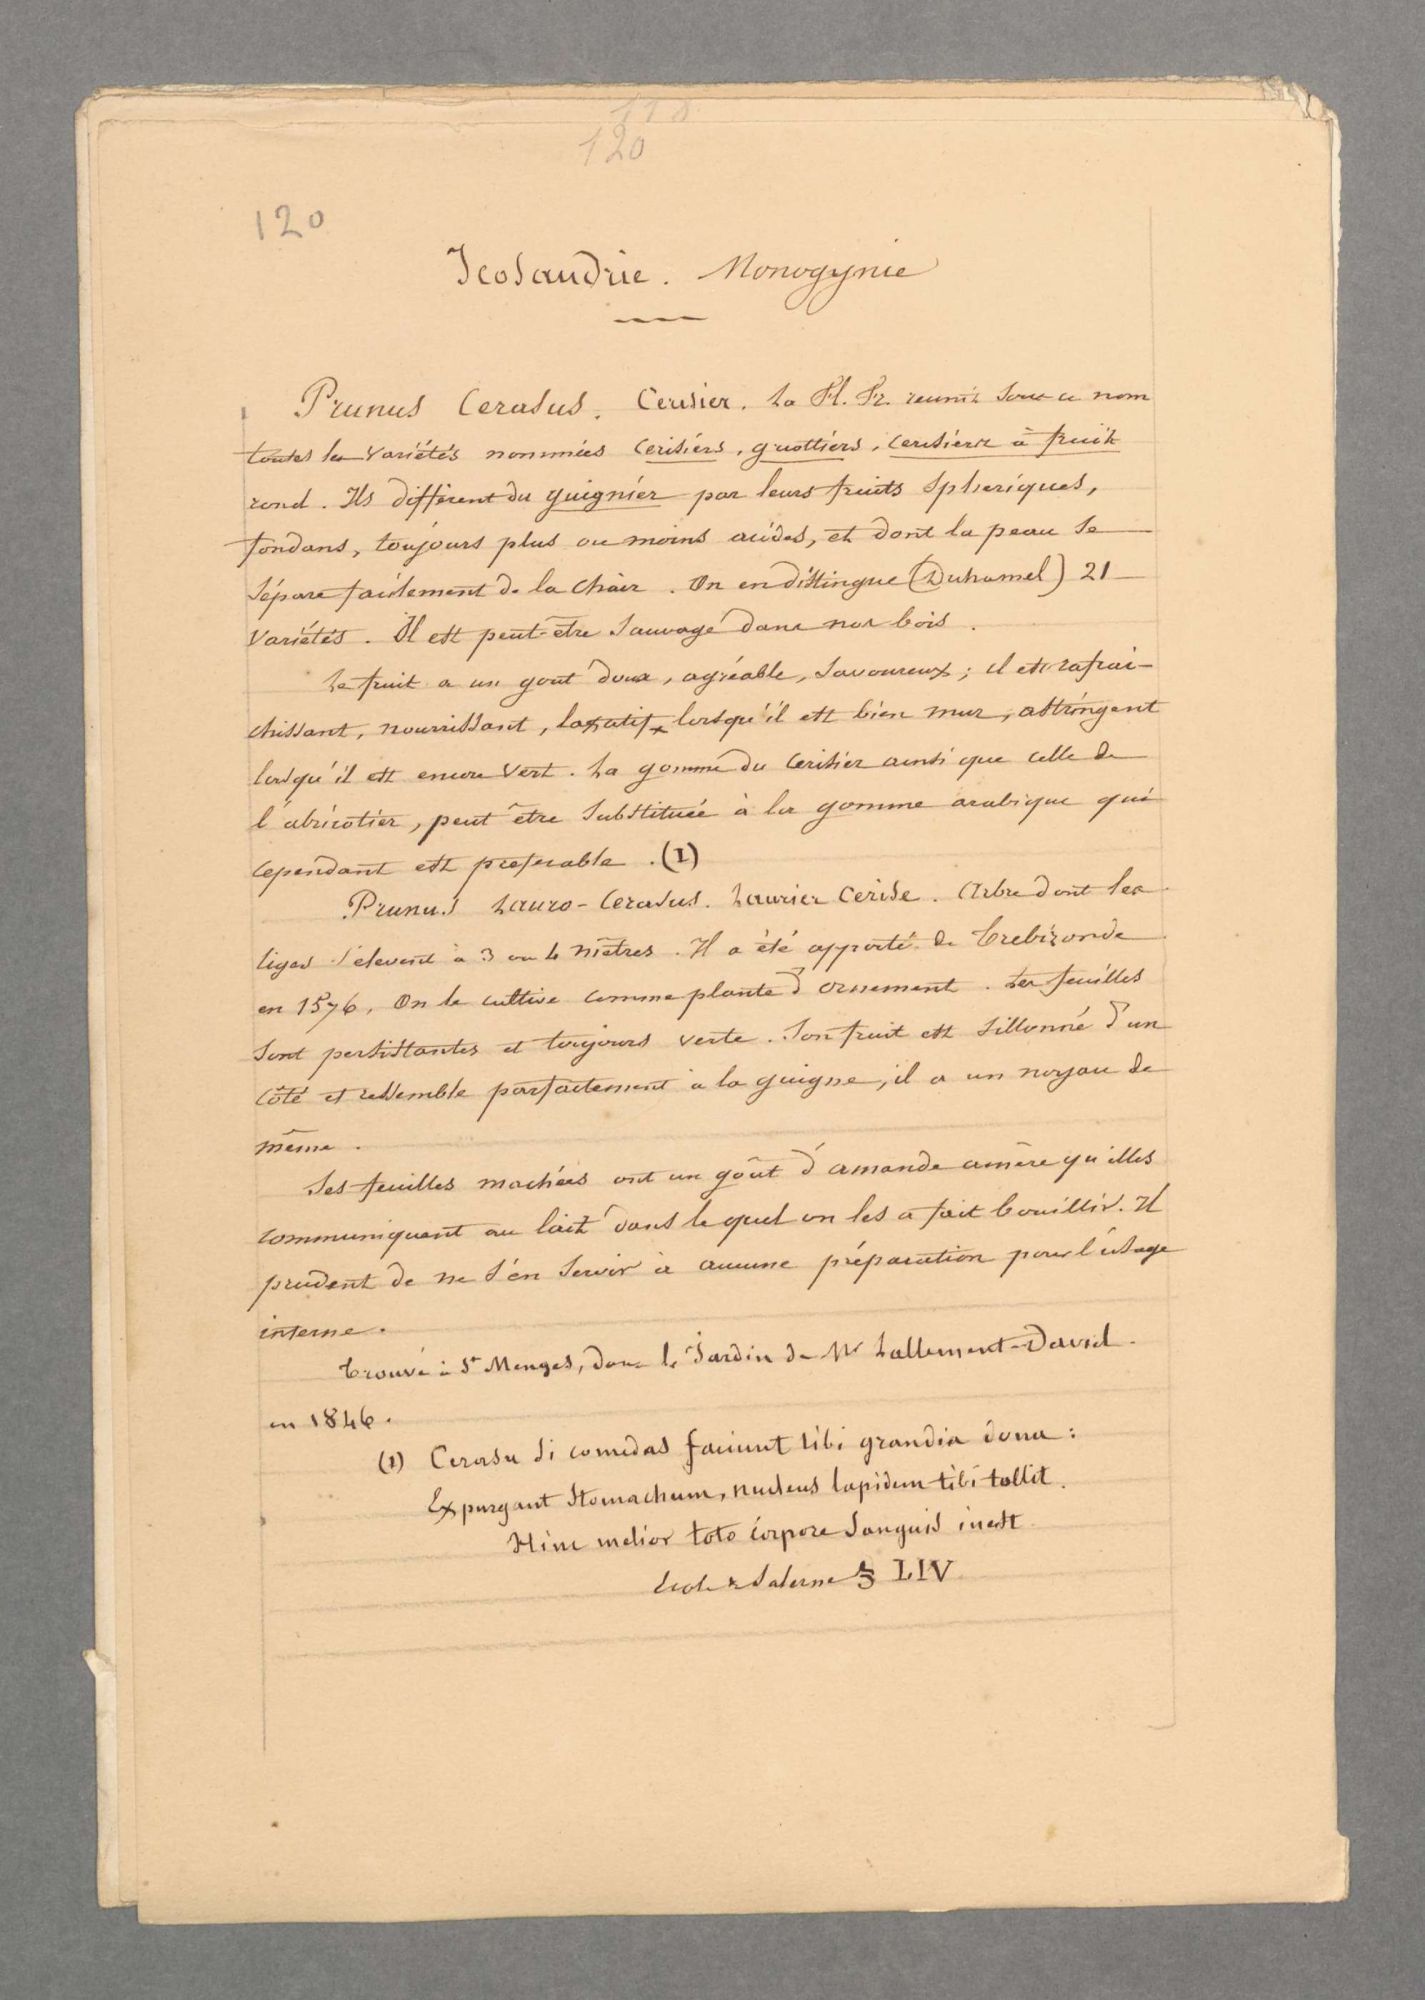 118
120
120
Icosandrie. Monogynie
Prunus Cerasus. Cerisier. La Fl. Fr. reunit sous ce nom
toutes les variétés nommées Cerisiérs, griottiérs, cerisierr à fruit
rond. Ils différent du guignier par leurs fruits sphériques,
fondans, toujours plus ou moins acides, et dont la peau se
sépare facilement de la chair. On en distingue (Duhamel) 21
variétés. Il est peut-être sauvage dans nos bois.
Le fruit a un gout doux, agréable, savoureux; il est rafrai-
chissant, nourrissant, laxatif lorsqu'il est bien mur, astringent
lorsqu'il est encore vert. La gomme du Cerisier ainsi que celle de
l'abricotier, peut être substituée à la gomme arabique qui
cependant est preferable. (1)
Prunus Lauro-Cerasus. Laurier Cerise. Arbre dont les
tiges s'elevent à 3 ou 4 mètres. Il a été apporté de Trebizonde
en 1576. On le cultive comme plante d'ornement. Ses feuilles
sont persistantes et toujours verte. Son fruit est sillonné d'un
côté et ressemble parfaitement à la guigne, il a un noyau de
même.
Ses feuilles machées ont un goût d'amande amère qu'elles
communiquent au lait dans lequel on les a fait bouillir. Il
prudent de ne s'en servir à aucune préparation pour l'usage
interne.
Trouvé à St Menges, dans le Jardin de Mr Lallement-David.
en 1846.
(1) Cerasa si comedas faciunt tibi grandia dona:
Expurgant stomachum, nucleus lapidem tibi tollit.
Hinc melior toto corpore sanguis inest
Ecole de Salerne § LIV